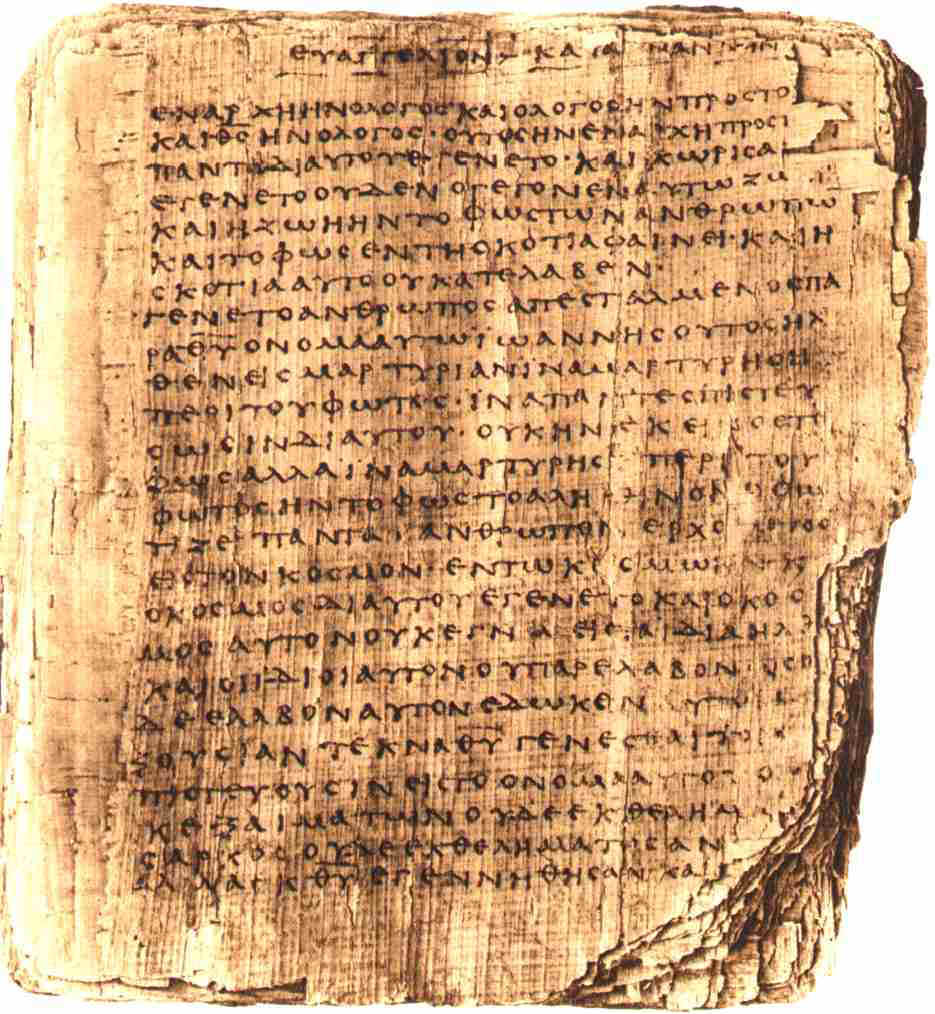 ΕΥΑΓΓΕΛΙΟΝ ΚΑΤΑ
ΕΝΑΡΧΗΗΝΟΛΟΓΟΣΚΑΙΟΛΟΓΟΣΗΝΠΡΟΣΤΟ
ΚΑΙΘΣΗΝΟΛΟΓΟΣ·ΟΥΤΟΣΗΝΕΝΑΡΧΗΠΡΟΣΤ
ΠΑΝΤΑΔΙΑΥΤΟΥΕΓΕΝΕΤΟ·ΚΑΙΧΩΡΙΣΑ
ΕΓΕΝΕΤΟΟΥΔΕΝΟΓΕΓΟΝΕΝΑΥΤΩΖΩ
ΚΑΙΗΖΩΗΗΝΤΟΦΩΣΤΩΝΑΝΘΡΩΠΩ
ΚΑΙΤΟΦΩΣΕΝΤΗΣΚΟΤΙΑΦΑΙΝΕΙ·ΚΑΙΗ
ΣΚΟΤΙΑΑΥΤΟΟΥΚΑΤΕΛΑΒΕΝ·
ΓΕΝΕΤΟΑΝΘΡΩΠΟΣΑΠΕΣΤΑΛΜΕΝΟΣΠΑ
ΡΑΘΥΟΝΟΜΑΑΥΤΩΙΩΑΝΝΗΣΟΥΤΟΣΗΛ
ΘΕΝΕΙΣΜΑΡΤΥΡΙΑΝΙΝΑΜΑΡΤΥΡΗΣΗ
ΠΕΡΙΤΟΥΦΩΤΟΣ·ΙΝΑΠΑΝΤΕΣΠΙΣΤΕΥ
ΣΩΣΙΝΔΙΑΥΤΟΥ·ΟΥΚΗΝΕΚΕΙΝΟΣΤΟ
ΦΩΣΑΛΛΑΙΝΑΜΑΡΤΥΡΗΣΗΠΕΡΙΤΟΥ
ΦΩΤΟΣΗΝΤΟΦΩΣΤΟΑΛΗΘΙΝΟΝΟΦΩ
ΤΙΖΕΙΠΑΝΤΑΑΝΘΡΩΠΟΝΕΡΧΟΜΕΝΟ
ΕΙΣΤΟΝΚΟΣΜΟΝ·ΕΝΤΩΚΟΣΜΩΗΝΚ
ΟΚΟΣΜΟΣΔΙΑΥΤΟΥΕΓΕΝΕΤΟΚΑΙΟΚΟΣ
ΜΟΣΑΥΤΟΝΟΥΚΕΓΝΩΕΙΣΤΑΙΔΙΑΗΛΘ
ΚΑΙΟΙΙΔΙΟΙΑΥΤΟΝΟΥΠΑΡΕΛΑΒΟΝ·ΟΣΟ
ΔΕΕΛΑΒΟΝΑΥΤΟΝΕΔΩΚΕΝΑΥΤΟ
ΞΟΥΣΙΑΝΤΕΚΝΑΘΥΓΕΝΕΣΘΑΙΤΟΙ
ΠΙΣΤΕΥΟΥΣΙΝΕΙΣΤΟΟΝΟΜΑΑΥΤΟΥΟ
ΚΕΞΑΙΜΑΤΩΝΟΥΔΕΕΚΘΕΛΗΜΑ
ΣΑΡΚΟΣΟΥΔΕΕΚΘΕΛΗΜΑΤΟΣΑΝ
ΑΛΛΑΕΚΘΥΕΓΕΝΝΗΘΗΣΑΝ·ΚΑΙ